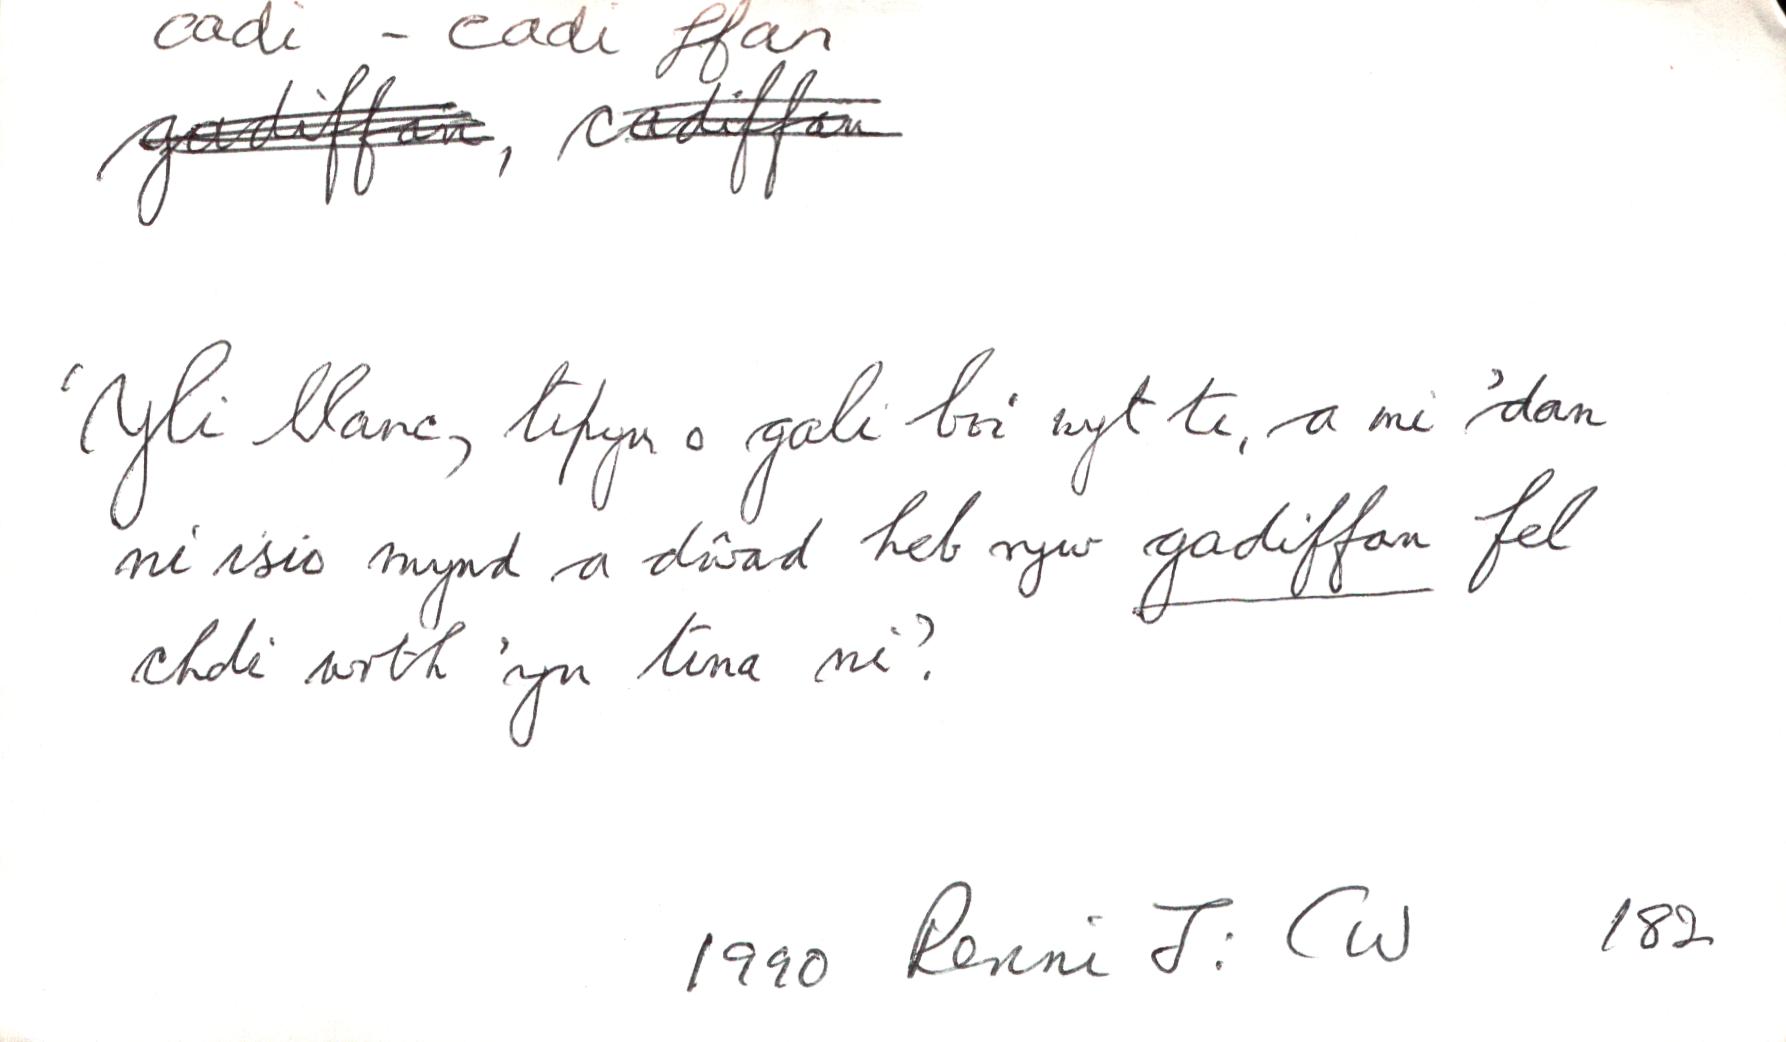 cadi - cadi ffan
gadiffan, cadiffan
'Yli llanc, tipyn o gali boi wyt ti, a mi 'dan
ni isio mynd a dŵad heb ryw gadiffan fel
chdi wrth 'yn tina ni?
1990 Renni J: CW 182